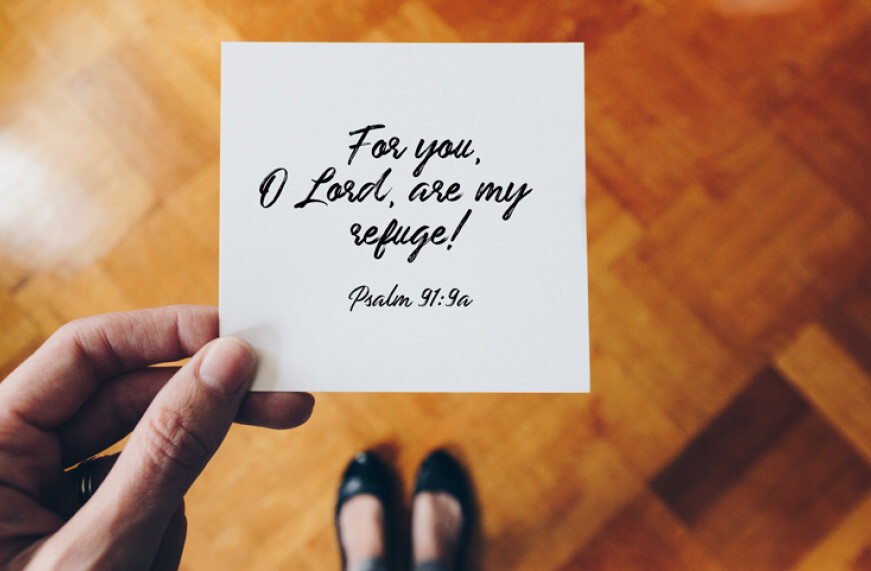 For you,
O Lord, are my
refuge!
Psalm 91:9a